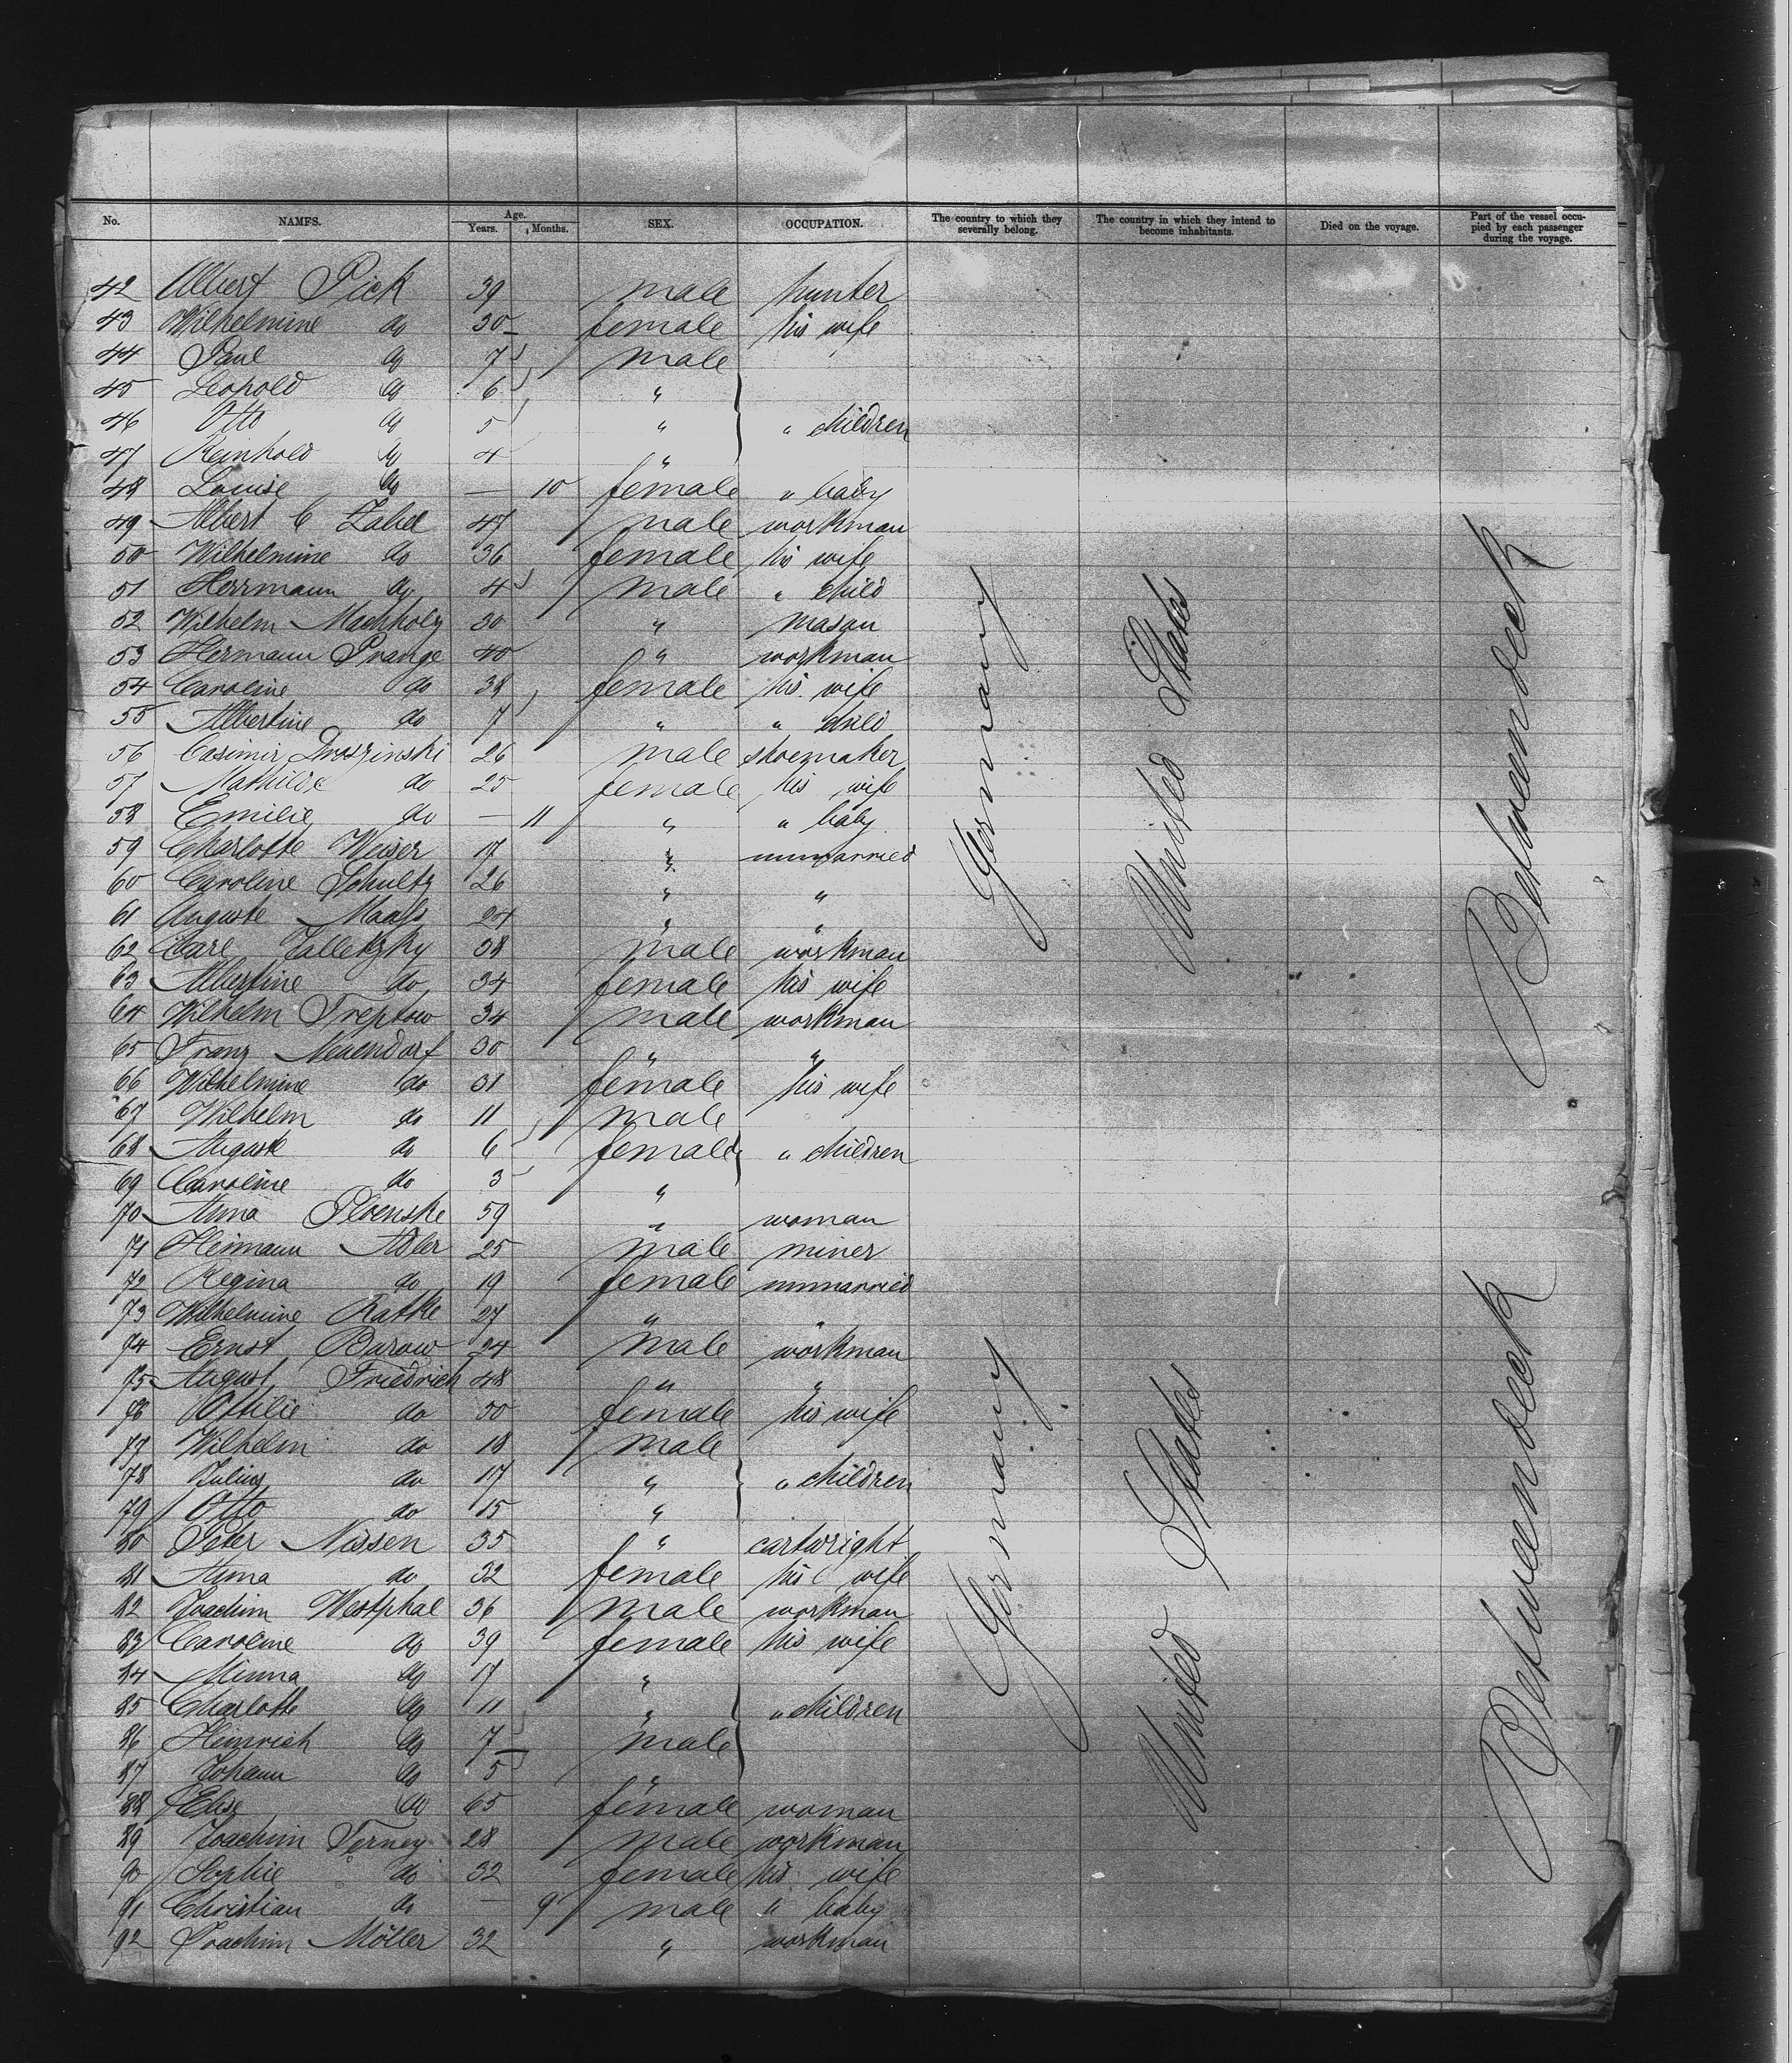 No. NAMES. Age. Years. Months. SEX. OCCUPATION. The country to which they severally belong. The country in which they intend to become inhabitants. Died on the voyage. Part of the vessel occupied by each passenger during the voyage.
42 Albert Pick 39 male hunter
43 Wilhelmine do 30 female his wife
44 Paul do 7 male
45 Leopold do 6 "
46 Otto do 5 " " children
47 Reinhold do 4 "
48 Louise do — 10 female " baby
49 Albert C Zabel 47 male workman
50 Wilhelmine do 36 female his wife
51 Herrmann do 4 male " child
52 Wilhelm Machholz 30 " mason
53 Hermann Prange 40 " workman
54 Caroline do 38 female his wife
55 Albertine do 7 " " child
56 Casimir 26 male shoemaker
57 Mathilde do 25 female his wife
58 Emilie do — 11 " " baby
59 Charlotte Weiser 17 " unmarried
60 Caroline Schultz 26 " "
61 Auguste Maass 24 " "
62 Carl Talletzky 38 male workman
63 Albertine do 34 female his wife
64 Wilhelm Treptow 34 male workman
65 Franz Neuendorf 30 " "
66 Wilhelmine do 31 female his wife
67 Wilhelm do 11 male
68 August do 6 female " children
69 Caroline do 3 "
70 Anna Ploenske 59 " woman
71 Heimann Adler 25 male miner
72 Regina do 19 female unmarried
73 Wilhelmine Ratke 27 " "
74 Ernst Barow 24 male workman
75 August Friedrich 48 " "
76 Ottilie do 50 female his wife
77 Wilhelm do 18 male
78 Julius do 17 " " children
79 Otto do 15 "
80 Peter Nissen 35 " cartwright
81 Anna do 32 female his wife
82 Joachim Westphal 36 male workman
83 Caroline do 39 female his wife
84 Minna do 17 "
85 Charlotte do 11 " " children
86 Heinrich do 7 male
87 Johann do 5 "
88 Elise do 65 female woman
89 Joachim Ferney 28 male workman
90 Sophie do 32 female his wife
91 Christian do — 9 male " baby
92 Joachim Möller 32 " workman
Germany United States Betweendeck
Germany United States Betweendeck